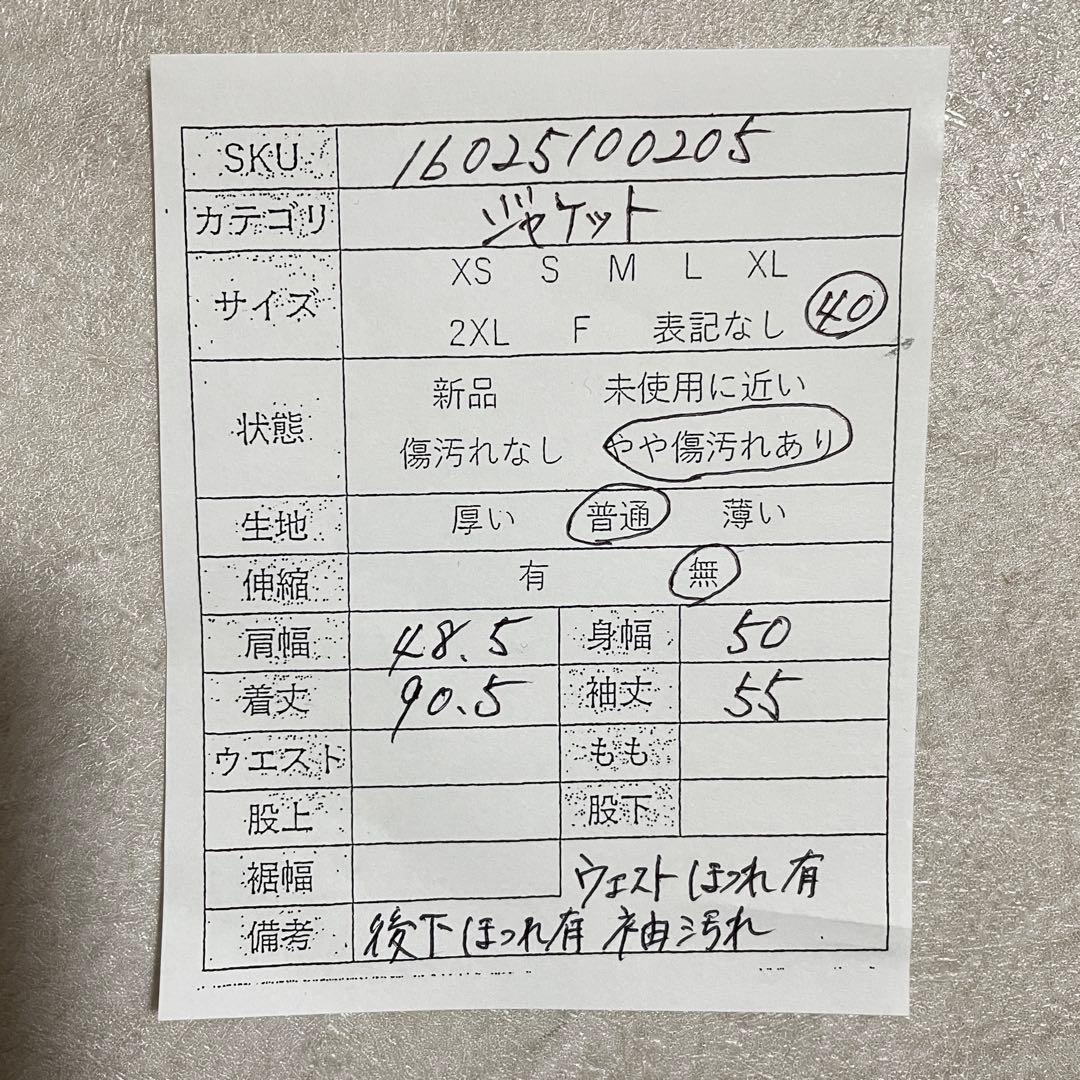 SKU 16025100205
カテゴリ ジャケット
サイズ XS S M L XL
2XL F 表記なし 40
状態 新品 未使用に近い
傷汚れなし やや傷汚れあり
生地 厚い 普通 薄い
伸縮 有 無
肩幅 48.5 身幅 50
着丈 90.5 袖丈 55
ウエスト もも
股上 股下
裾幅 ウエストほつれ有
備考 後下ほつれ有 袖汚れ